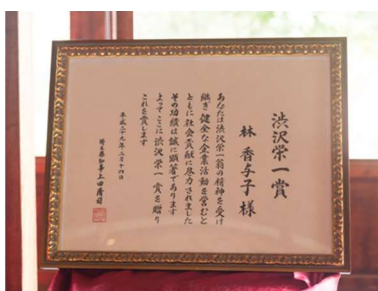 渋沢栄一賞
林 香与子 様
あなたは渋沢栄一翁の精神を受け
継ぎ健全な企業活動を営むと
ともに社会貢献に尽力されました
その功績は誠に顕著であります
よってここに渋沢栄一賞を贈り
これを賞します
平成二十九年二月十四日
埼玉県知事 上田清司